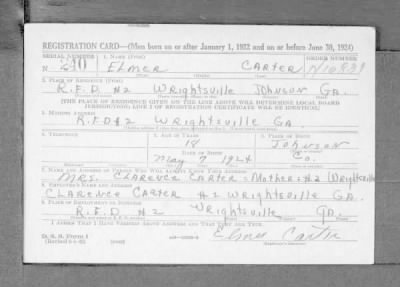 REGISTRATION CARD—(Men born on or after January 1, 1922 and on or before June 30, 1924)
SERIAL NUMBER 1. NAME (Print) ORDER NUMBER
N ELMER CARTER
2. PLACE OF RESIDENCE (Print)
R.F.D #2 Wrightsville JOHNSON GA.
[THE PLACE OF RESIDENCE GIVEN ON THE LINE ABOVE WILL DETERMINE LOCAL BOARD
JURISDICTION; LINE 2 OF REGISTRATION CERTIFICATE WILL BE IDENTICAL]
3. MAILING ADDRESS
R.F.D #2 Wrightsville GA.
4. TELEPHONE 5. AGE IN YEARS 6. PLACE OF BIRTH
18 JOHNSON
DATE OF BIRTH
May 7 1924 Co.
7. NAME AND ADDRESS OF PERSON WHO WILL ALWAYS KNOW YOUR ADDRESS
MRS. CLARENCE CARTER - Mother #2 Wrightsville
8. EMPLOYER'S NAME AND ADDRESS
CLARENCE CARTER #2 WRIGHTSVILLE GA.
9. PLACE OF EMPLOYMENT OR BUSINESS
R.F.D #2 Wrightsville GA.
I AFFIRM THAT I HAVE VERIFIED ABOVE ANSWERS AND THAT THEY ARE TRUE.
D. S. S. Form 1
Elmer Carter